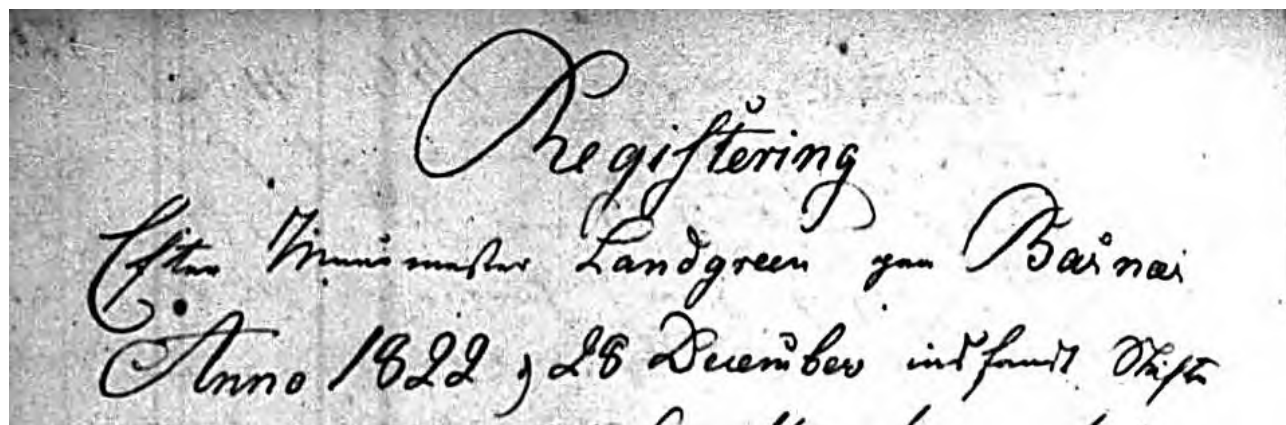 Registering
Efter Muurmester Landgreen paa Basnæs
Anno 1822, 28 December indfandt Skifte